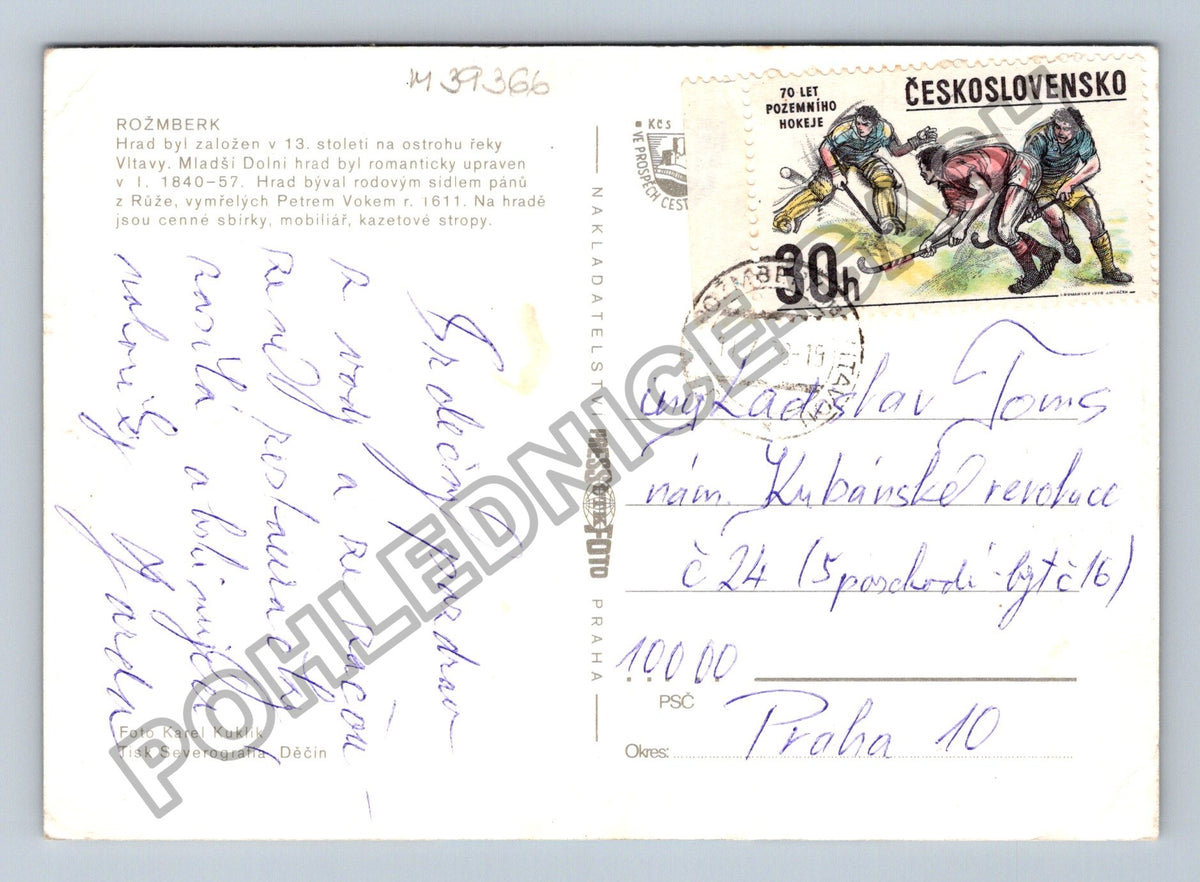 M 39366
ROŽMBERK
Hrad byl založen v 13. století na ostrohu řeky
Vltavy. Mladší Dolní hrad byl romanticky upraven
v l. 1840–57. Hrad býval rodovým sídlem pánů
z Růže, vymřelých Petrem Vokem r. 1611. Na hradě
jsou cenné sbírky, mobiliář, kazetové stropy.
Srdečný pozdrav
z vody a ze
zasílá
Jarda
Foto Karel Kuklík
Tisk Severografia, Děčín
NAKLADATELSTVÍ PRESSFOTO PRAHA
Kčs
VE PROSPĚCH CEST
70 LET
POZEMNÍHO
HOKEJE
ČESKOSLOVENSKO
30h
Ladislav Toms
nám. Kubánské revoluce
č 24 (5 poschodí - byt č 16)
100 00
PSČ
Praha 10
Okres:
POHLEDNICE